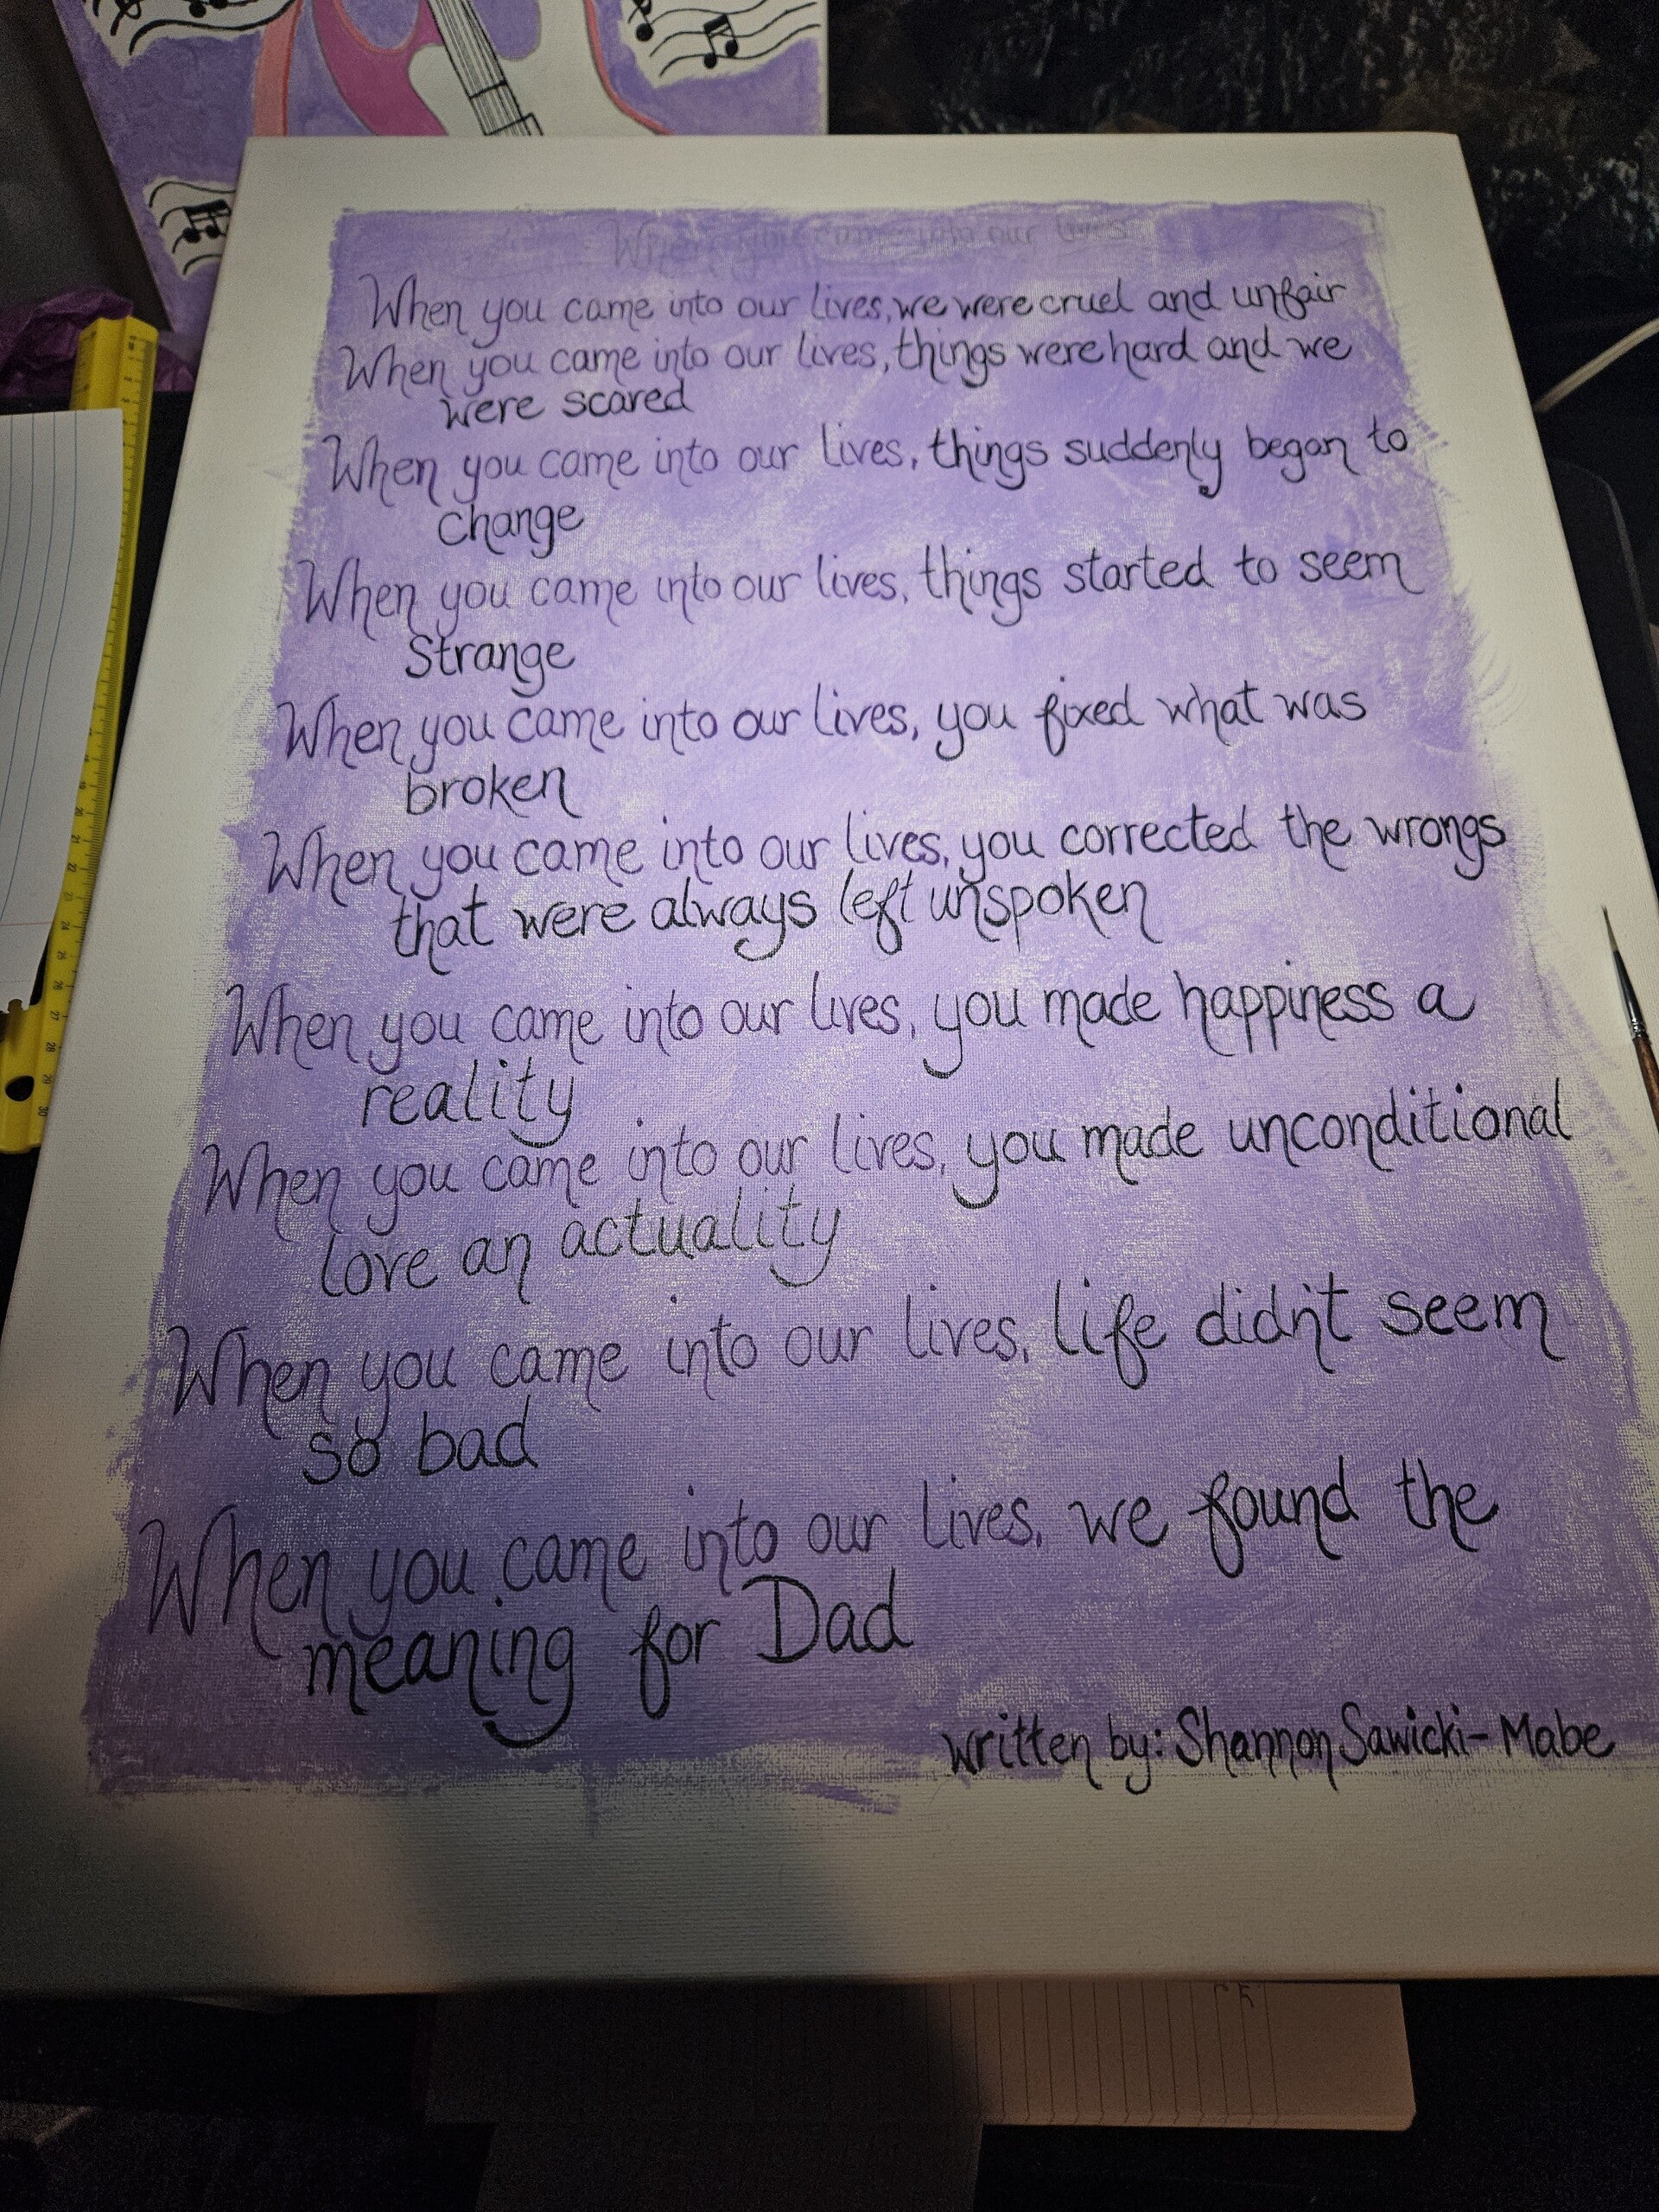 When you came into our lives
When you came into our lives, we were cruel and unfair
When you came into our lives, things were hard and we
were scared
When you came into our lives, things suddenly began to
change
When you came into our lives, things started to seem
Strange
When you came into our lives, you fixed what was
broken
When you came into our lives, you corrected the wrongs
that were always left unspoken
When you came into our lives, you made happiness a
reality
When you came into our lives, you made unconditional
love an actuality
When you came into our lives, life didn't seem
so bad
When you came into our lives, we found the
meaning for Dad
written by: Shannon Sawicki-Mabe